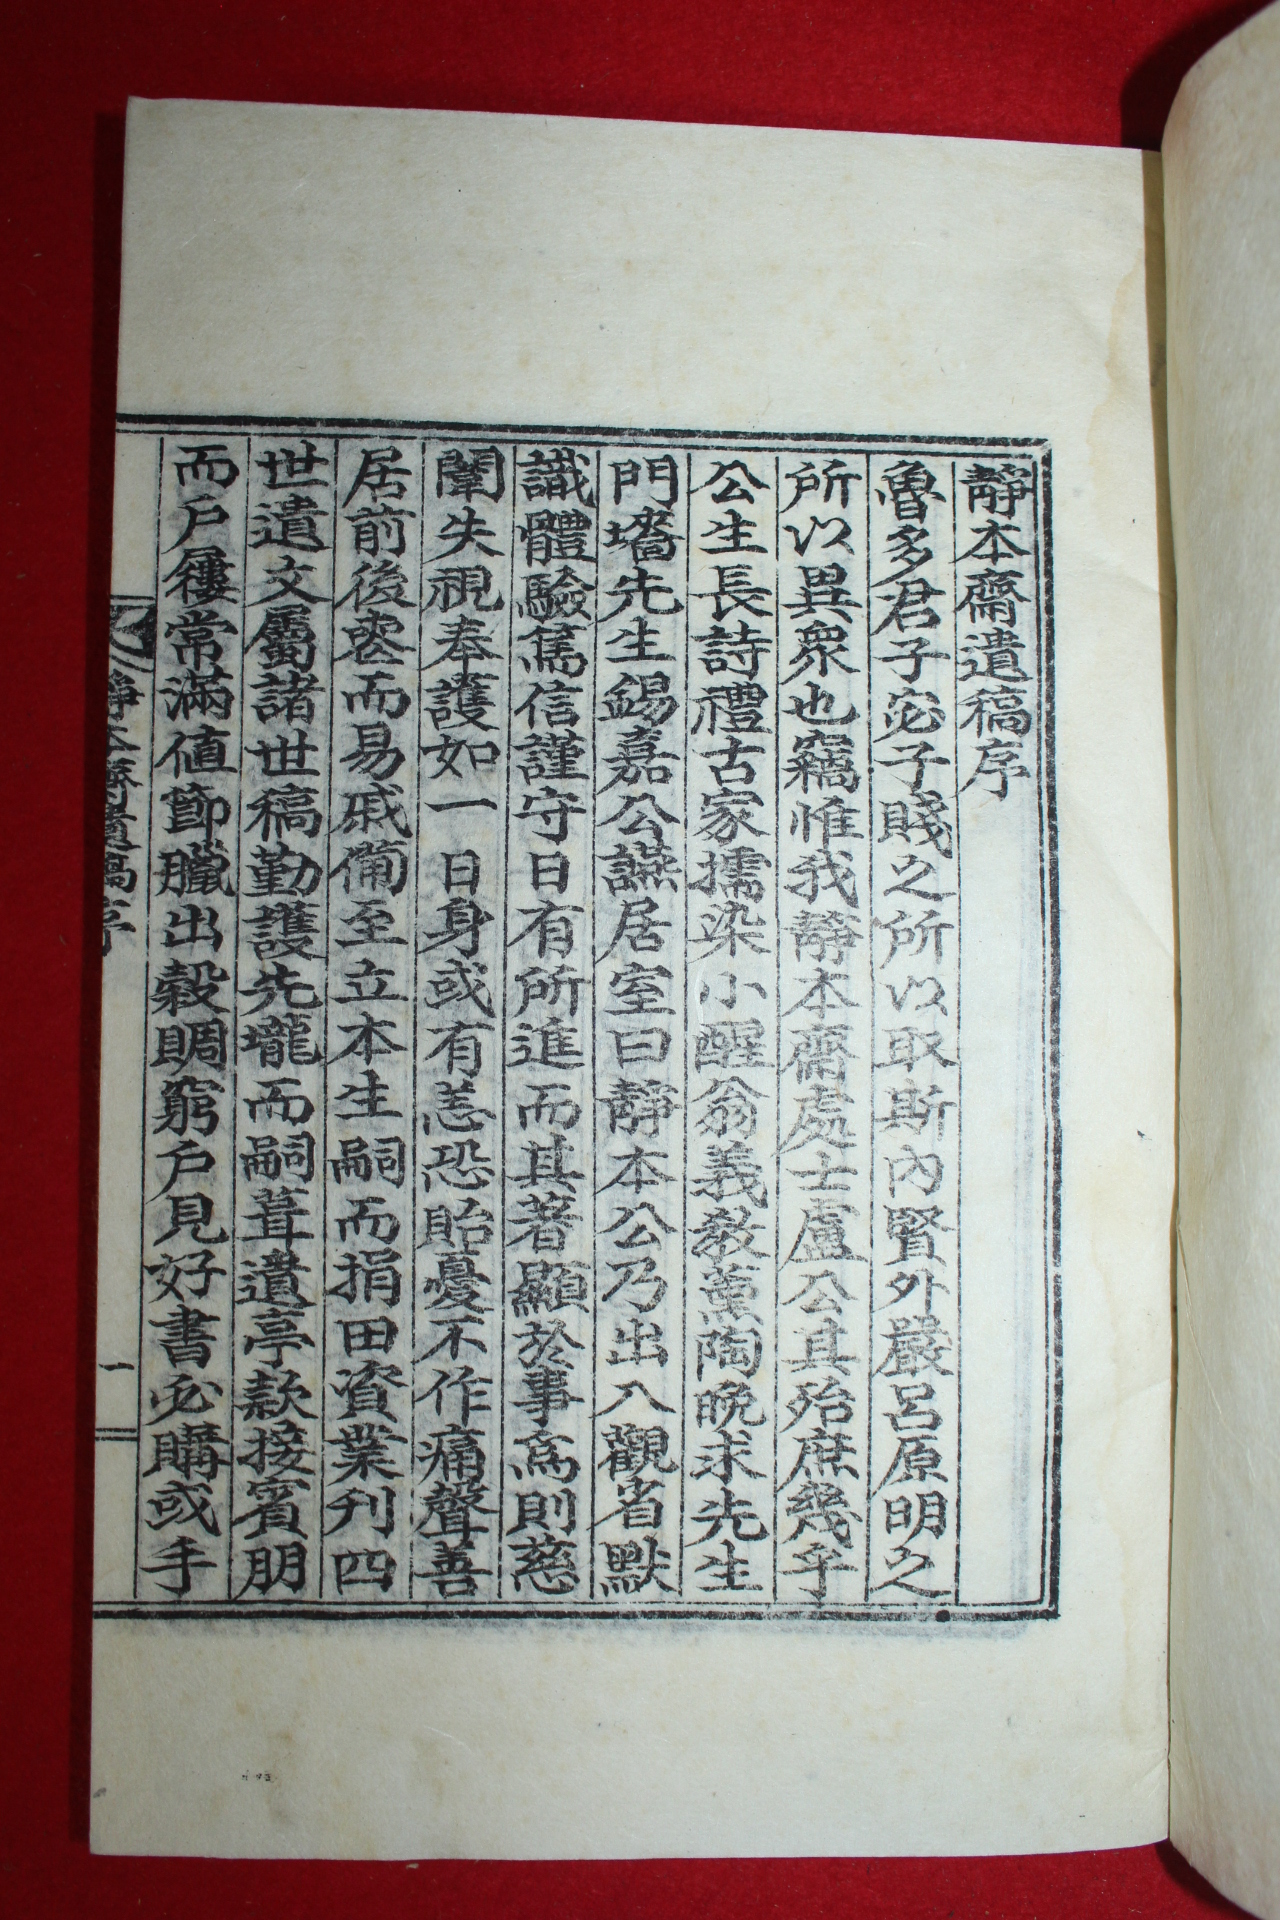 靜本齋遺稿序
魯多君子宓子賤之所以取斯內賢外嚴呂原明之
所以異衆也竊惟我靜本齋處士盧公其殆庶幾乎
公生長詩禮古家擩染小醒翁義敎薰陶晩求先生
門墻先生錫嘉公讌居室曰靜本公乃出入觀省默
識體驗篤信謹守日有所進而其著顯於事爲則慈
闈失視奉護如一日身或有恙恐貽憂不作痛聲善
居前後喪而易戚備至立本生嗣而捐田資業刊四
世遺文屬諸世稿勤護先壠而嗣葺遺亭款接賓朋
而戶屨常滿値節臘出穀賙窮戶見好書必購或手
靜本齋遺稿序
一